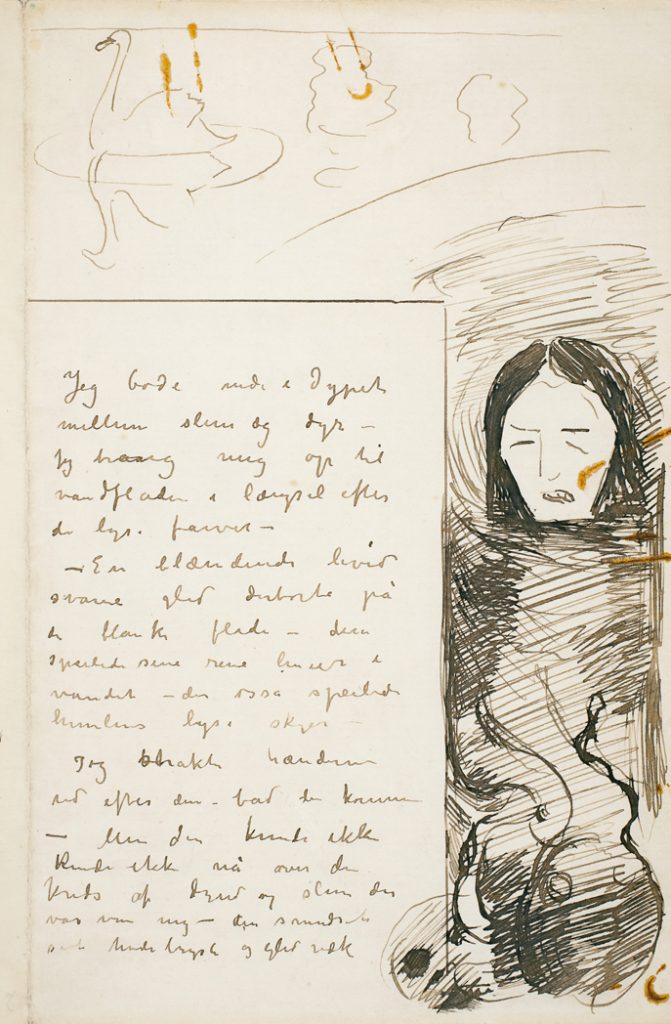 Jeg bode nede i Dypet
mellem slim og dyr –
jeg trang mig op til
vandfladen i længsel efter
de lyse farver –
– En blændende hvid
svane gled derborte på
de blanke flade – den
speilede sine rene linier i
vandet – der ossa speilede
himlens lyse skyer –
Jeg strakte hænderne
ud efter den – bad den komme
– Men den kunde ikke
kunde ikke nå over den
kreds af dynd og slim der
var om mig – den smudsede
sit hvide bryst og gled væk